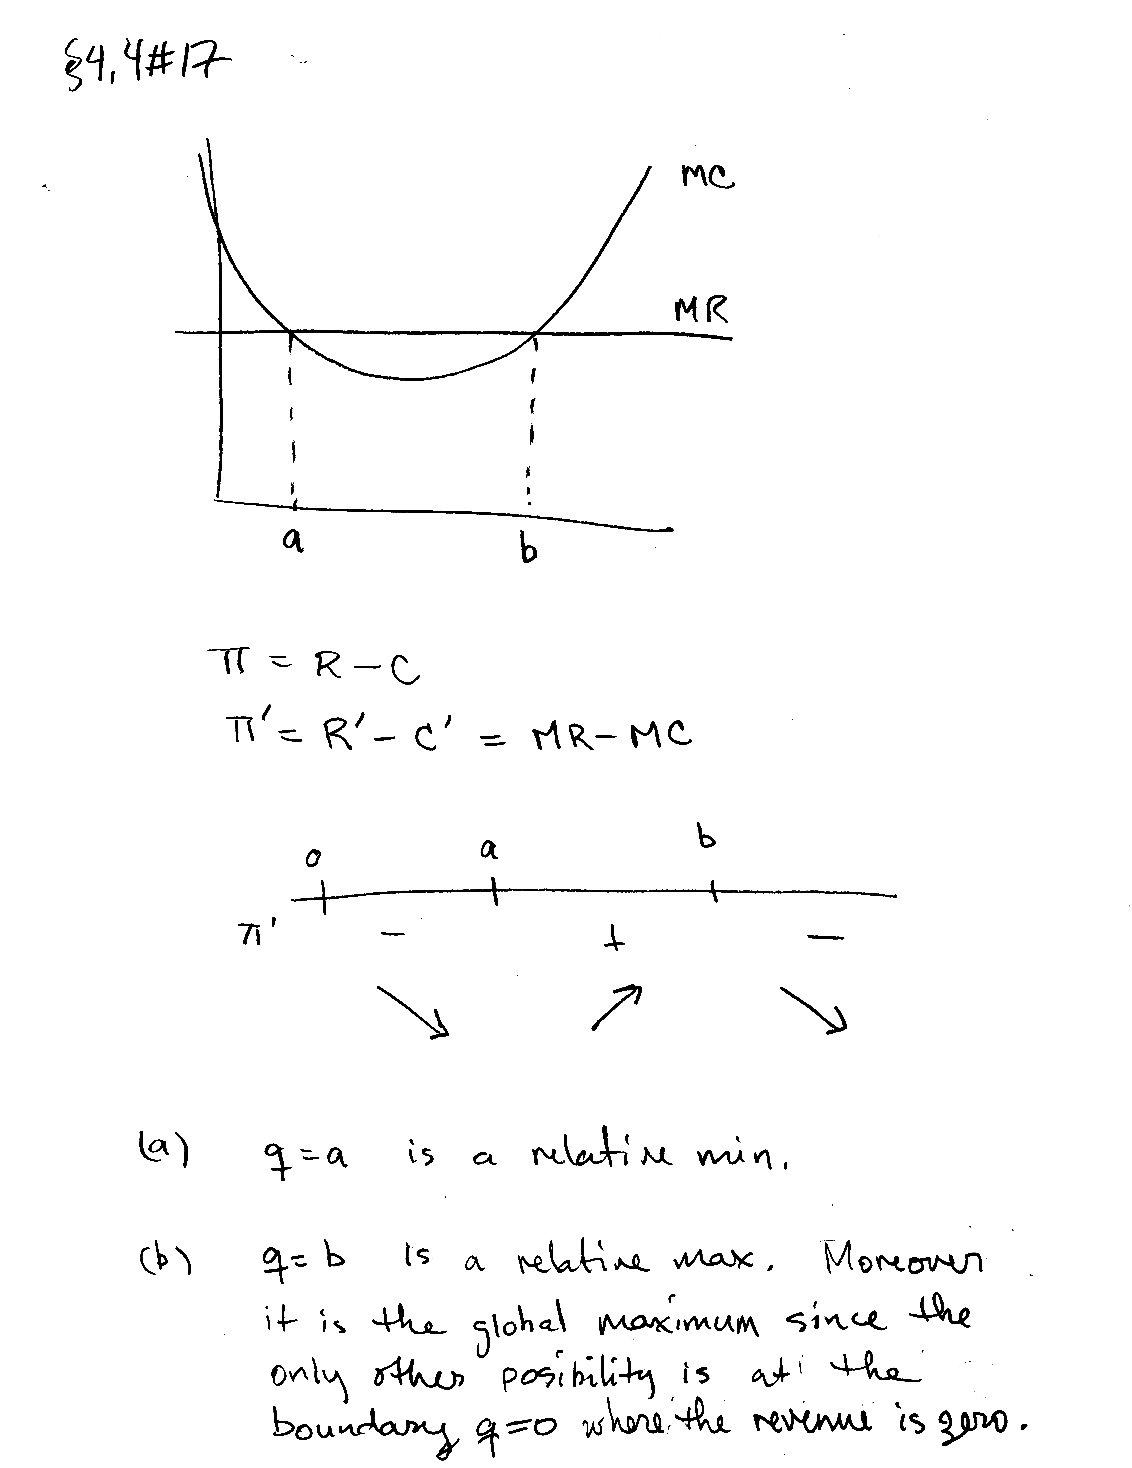 §4.4#17
MC
MR
a b
π = R - C
π' = R' - C' = MR - MC
0 a b
π' - + -
(a) q=a is a relative min.
(b) q=b is a relative max. Moreover
it is the global maximum since the
only other posibility is at the
boundary q=0 where the revenue is zero.